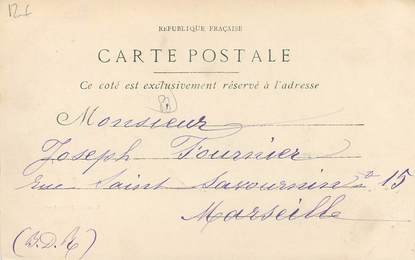 RÉPUBLIQUE FRANÇAISE
CARTE POSTALE
Ce côté est exclusivement réservé à l'adresse
Monsieur
Joseph Fournier
rue Saint Savournin 15
Marseille
(B.D.R)